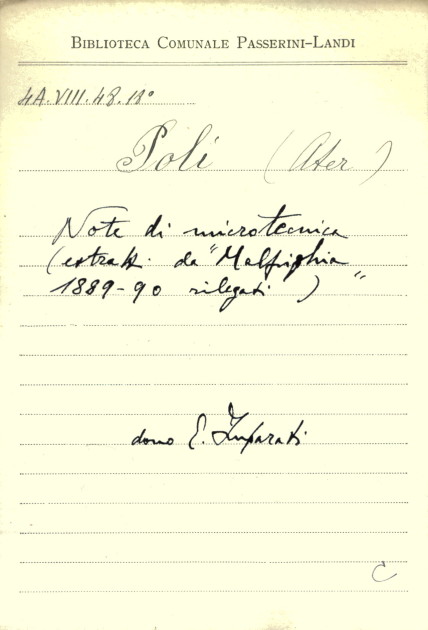 BIBLIOTECA COMUNALE PASSERINI-LANDI
4A.VIII.48.18°
Poli (Ater)
Note di microtecnica
(estratt. da "Malpighia"
1889-90 rilegati)
dono E. Imparati
C